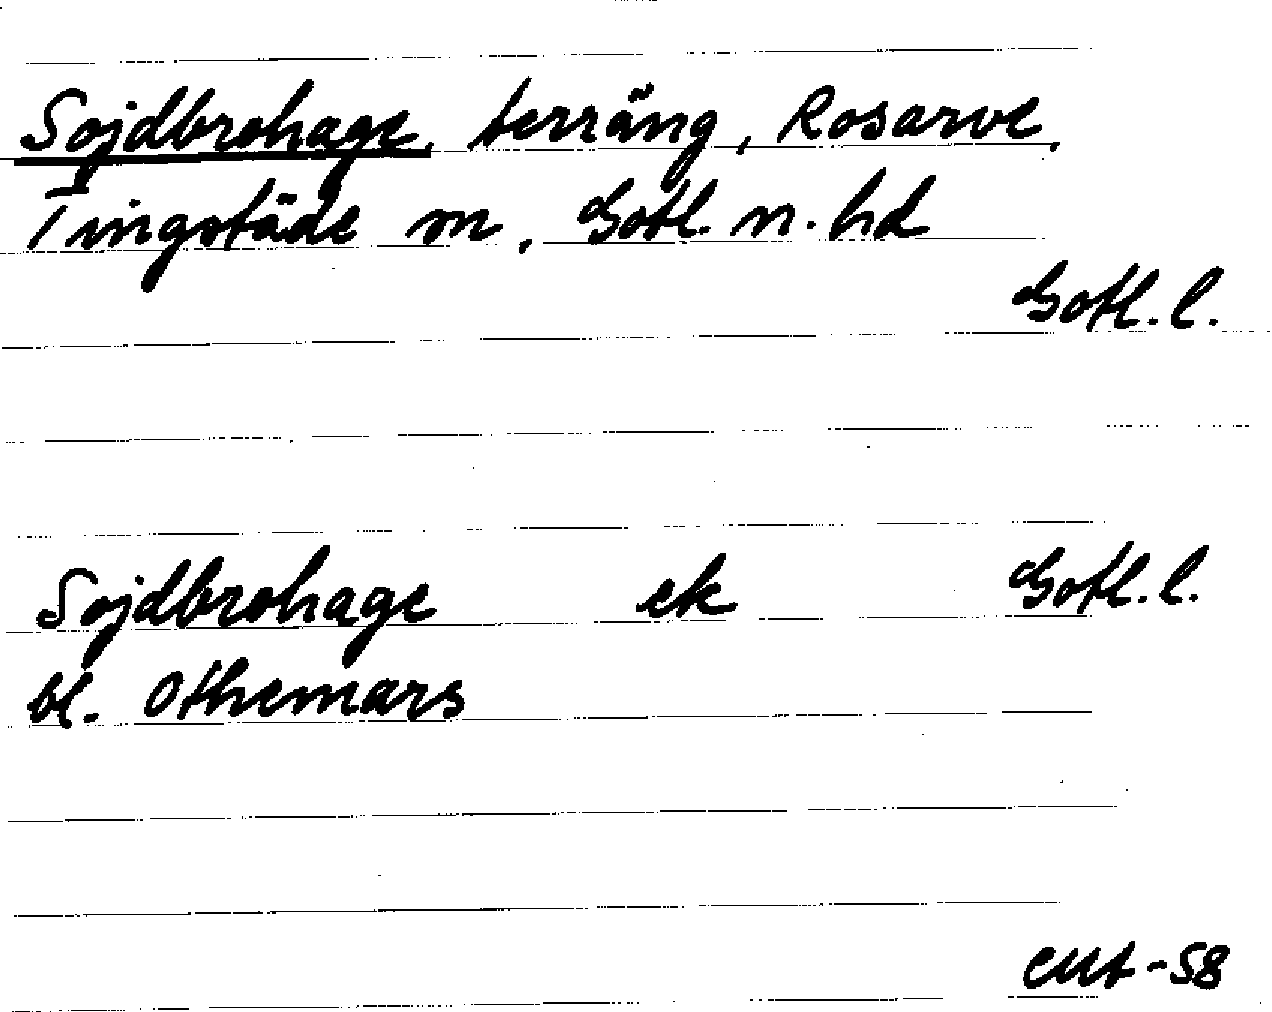 Sojdbrohage, terräng, Rosarve,
Tingstäde sn, Gotl. n. hd
Gotl. l.
Sojdbrohage ek Gotl. l.
bl. Othemars
-58